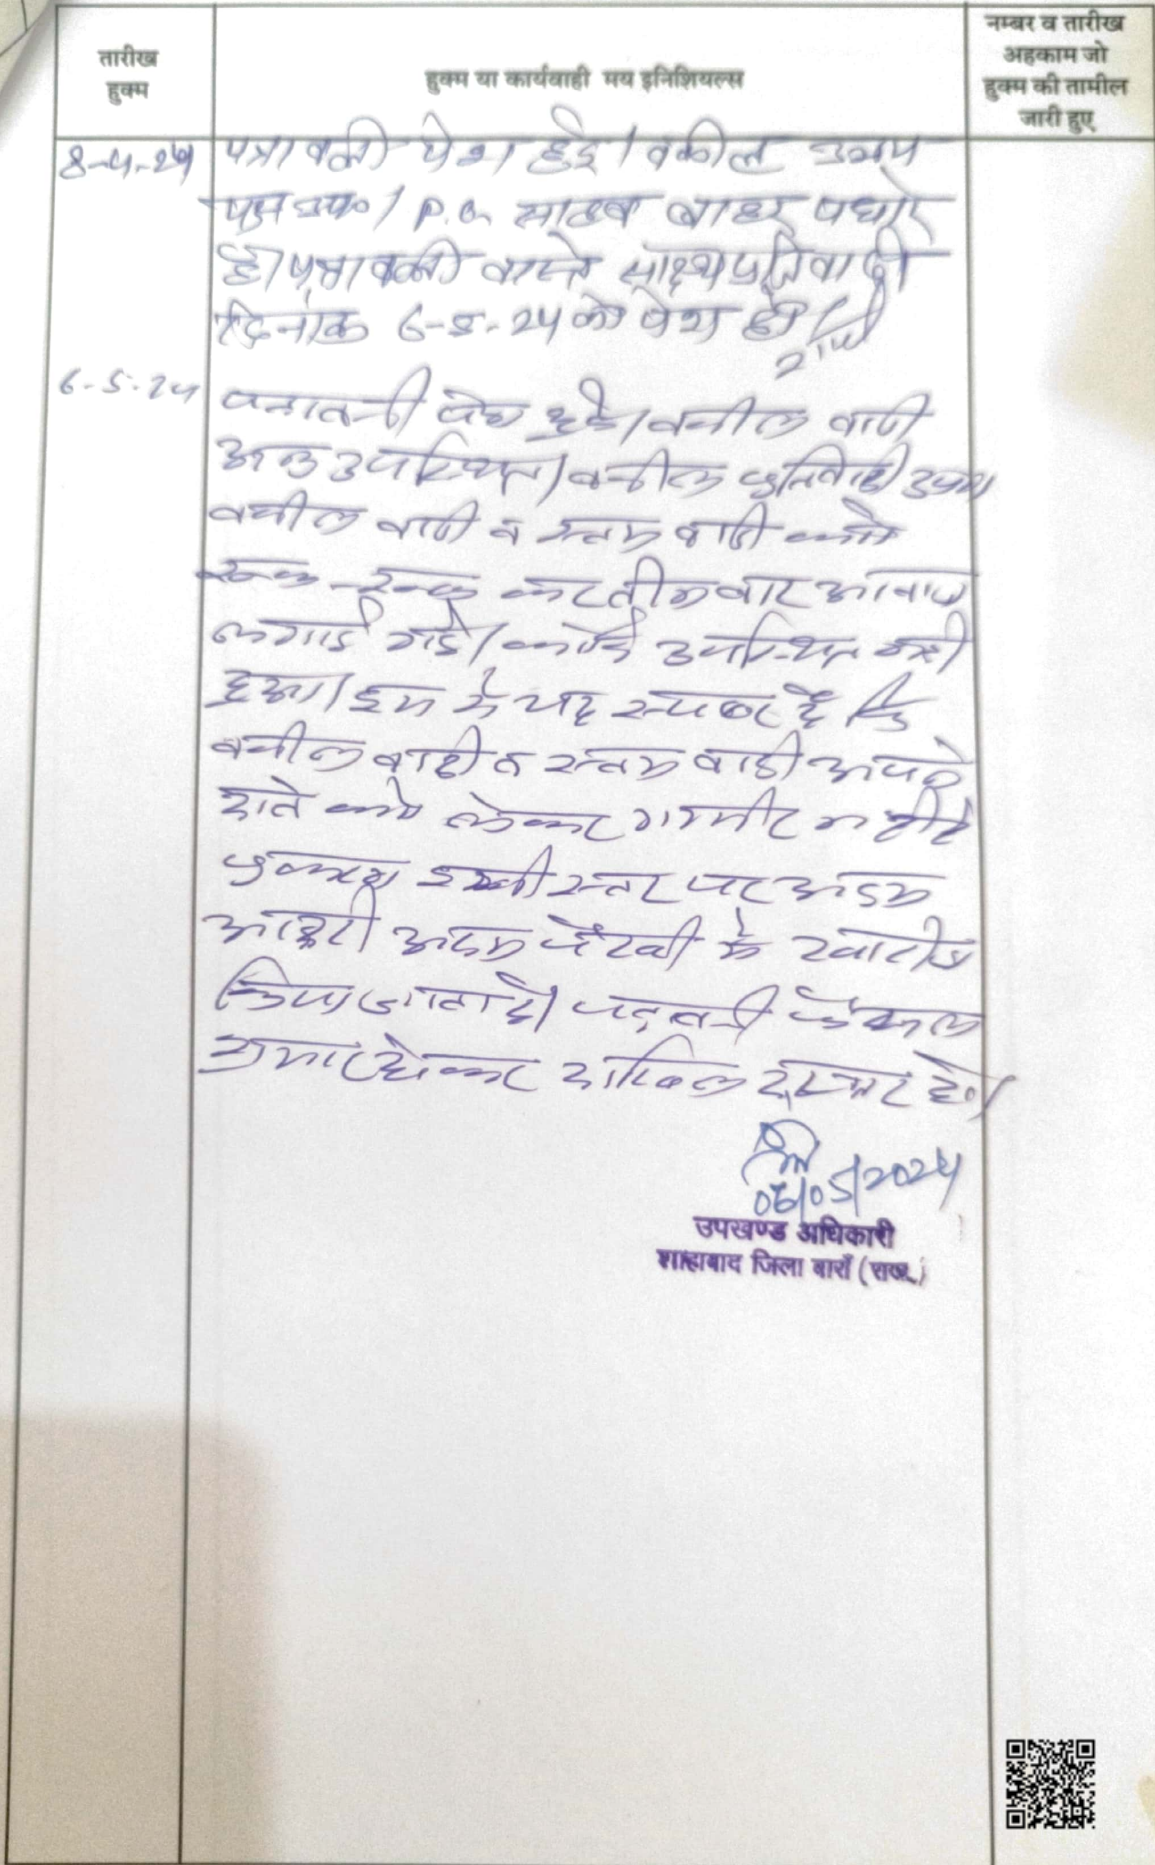 तारीख
हुक्म
हुक्म या कार्यवाही मय इनिशियल्स
नम्बर व तारीख
अहकाम जो
हुक्म की तामील
जारी हुए
8-4-24
पत्रावली पेश हुई। वकील उभय
पक्ष उप०। P.O. साहब बाहर पधारे
है। पत्रावली वास्ते साक्ष्य प्रतिवादी
दिनांक 6-5-24 को पेश हो।
6-5-24
पत्रावली पेश हुई। वकील वादी
अनउपस्थित। वकील प्रतिवादी उप०।
वकील वादी व स्वयम वादी को
रुक-रुक कर तीन बार आवाज
लगाई गई। कोई उपस्थित नही
हुआ। इस से यह स्पष्ट है कि
वकील वादी व स्वयम वादी अपने
को लेकर गम्भीर नही है
प्रकरण इसी स्तर पर अदम
हाजरी अदम पैरवी मे खारीज
किया जाता है। पत्रावली फैसल
शुमार होकर दाखिल दफ्तर हो।
06/05/2024
उपखण्ड अधिकारी
शाहाबाद जिला बाराँ (राज.)